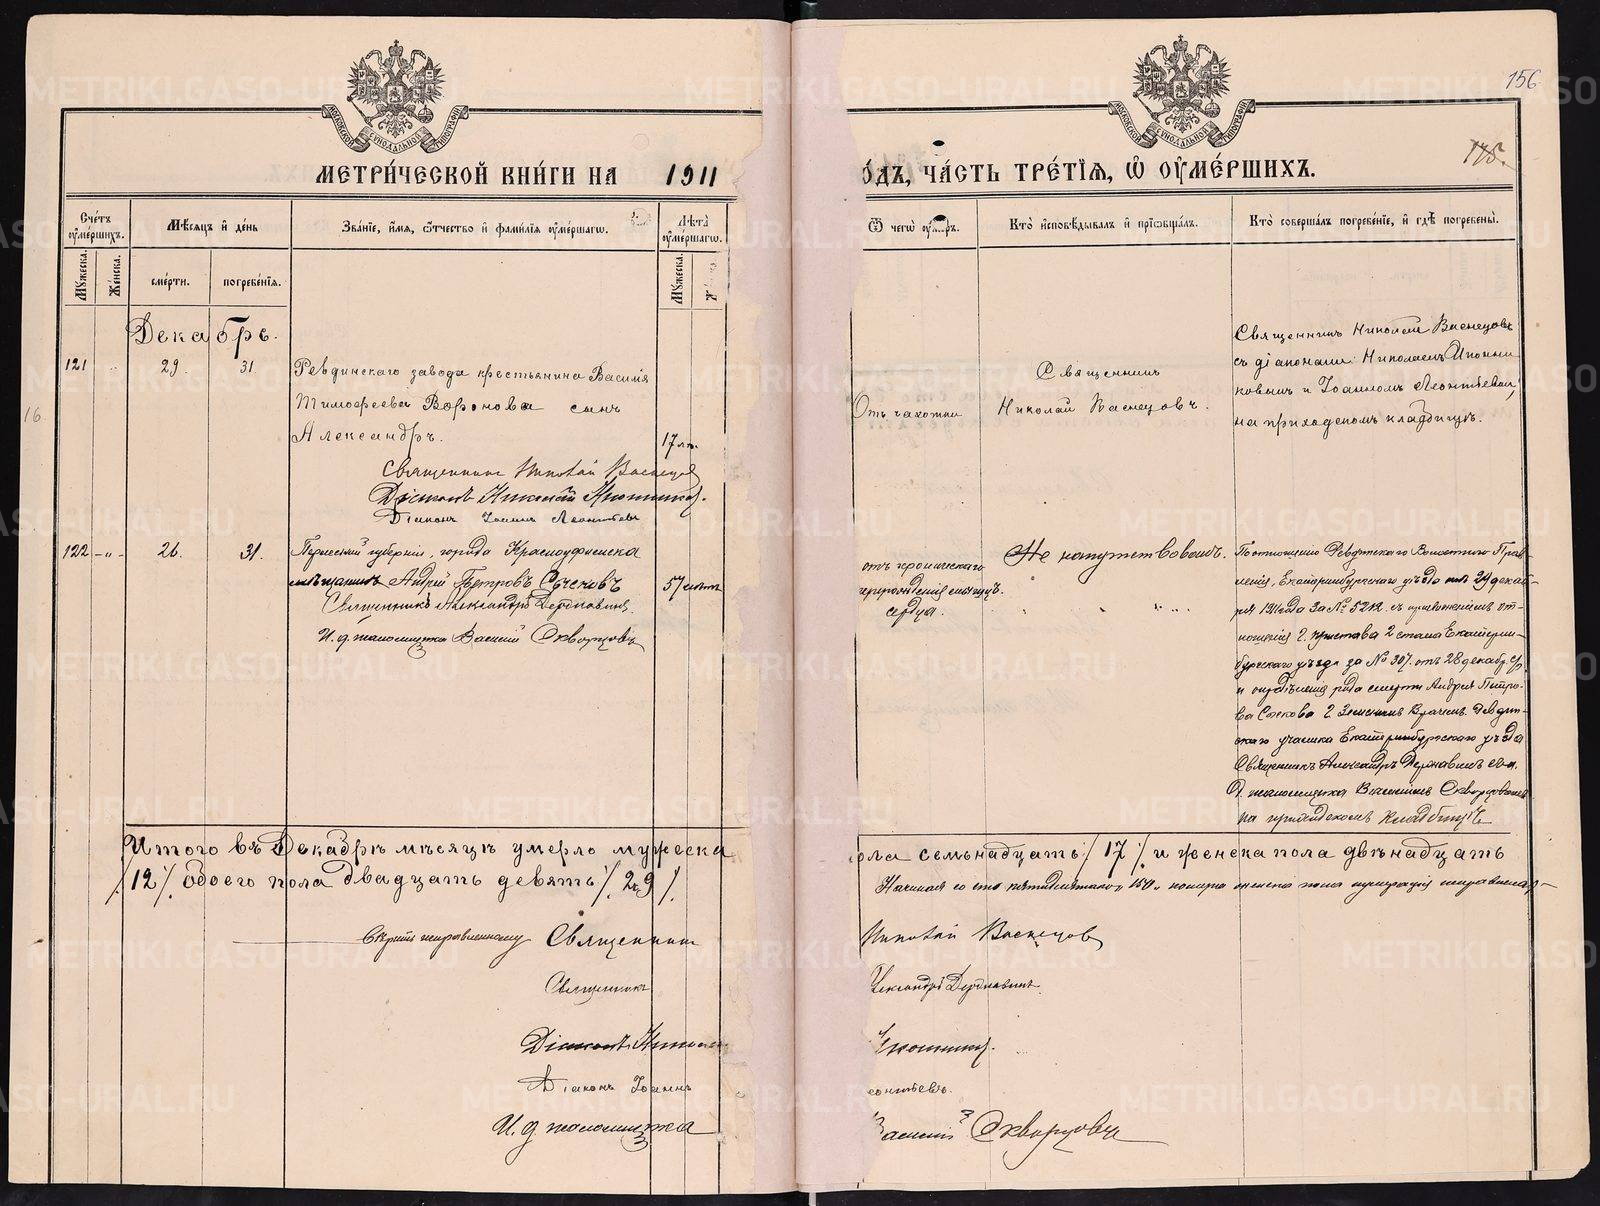 156
175.
МЕТРИ́ЧЕСКОЙ КНИ́ГИ НА 1911
О́ДЪ, ЧА́СТЬ ТРЕ́ТІЯ, Ѿ ОУМЕ́РШИХЪ.
Сче́тъ оумершихъ.
Мѣсяцъ и день
Зва́ніе, и́мя, ѻ҆́тчество и фами́лія оуме́ршагѡ.
Лѣта оуме́ршагѡ.
Ѿ чегѡ̀ оу́меръ.
Кто̀ исповѣ́дывалъ и пріѡбща́лъ.
Кто̀ соверша́лъ погребе́ніе, и гдѣ̀ погребены̀.
Мужеска.
Женска.
сме́рти.
погребе́нія.
Мужеска.
Декабрь.
121
29.
31.
Ревдинскаго завода крестьянина Василія
Тимофеева Воронова сынъ
Александръ.
17 лѣт.
Священникъ Николай Васнецовъ
Діаконъ Николай
Діаконъ Іоаннъ Леонтьевъ
Отъ чахотки
Священникъ
Николай Васнецовъ.
Священникъ Николай Васнецовъ
съ діаконами: Николаемъ Икони
ковымъ и Іоанномъ Леонтьевымъ,
на приходскомъ кладбищѣ.
122 – „ –
26.
31.
Пермской губерніи, города Красноуфимска
мѣщанинъ Андрей Петровъ
57 лѣтъ
Священникъ Александръ Державинъ.
И. д. псаломщика Василій Скворцовъ
отъ хроническаго
перерожденія мышцъ
сердца.
Не напутствованъ.
По отношенію Ревдинскаго Волостного Прав-
ленія, Екатеринбургскаго уѣзда отъ 29 декаб-
ря 1911 года за № 5212. съ приложеніемъ от-
ношенія г. пристава 2 стана Екатерин-
бургскаго уѣзда за № 307. отъ 28 декабр. с/г
и опредѣленія рода смерти Андрея Петро-
ва г. Земскимъ Врачемъ Ревдин-
скаго участка Екатеринбургскаго уѣзда
Священникъ Александръ Державинъ съ и.
д. псаломщика Василіемъ Скворцовымъ
на приходскомъ кладбищѣ
Итого въ Декабрѣ мѣсяцѣ умерло мужеска
ола семьнадцать /17/. и женска пола двѣнадцать
/12/. обоего пола двадцать девять /29/
Начиная со сто пятидесятаго „150“ номера
Священникъ
Николай Васнецовъ
Священникъ
лександръ Державинъ.
Діаконъ Никола
Діаконъ Іоаннъ
еонтьевъ.
И. д. псаломщика
Василій Скворцовъ
16
METRIKI.GASO-URAL.RU